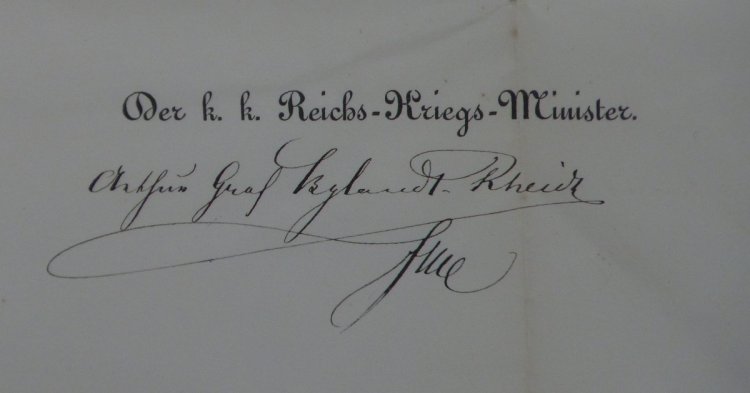 Der k. k. Reichs-Kriegs-Minister.
Arthur Graf Bylandt-Rheidt
FML